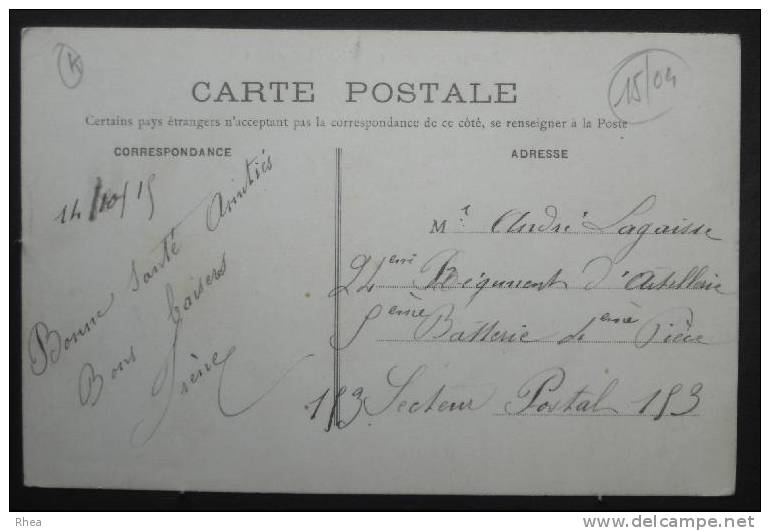 K
15/04
CARTE POSTALE
Certains pays étrangers n'acceptant pas la correspondance de ce côté, se renseigner à la Poste
CORRESPONDANCE
ADRESSE
14/10/15
Bonne Santé Amitiés
Bons baisers
Irène
Mr André Lagaisse
24eme Régiment d'Artillerie
5eme Batterie 4eme Pièce
153 Secteur Postal 153
Rhea
www.delcampe.net